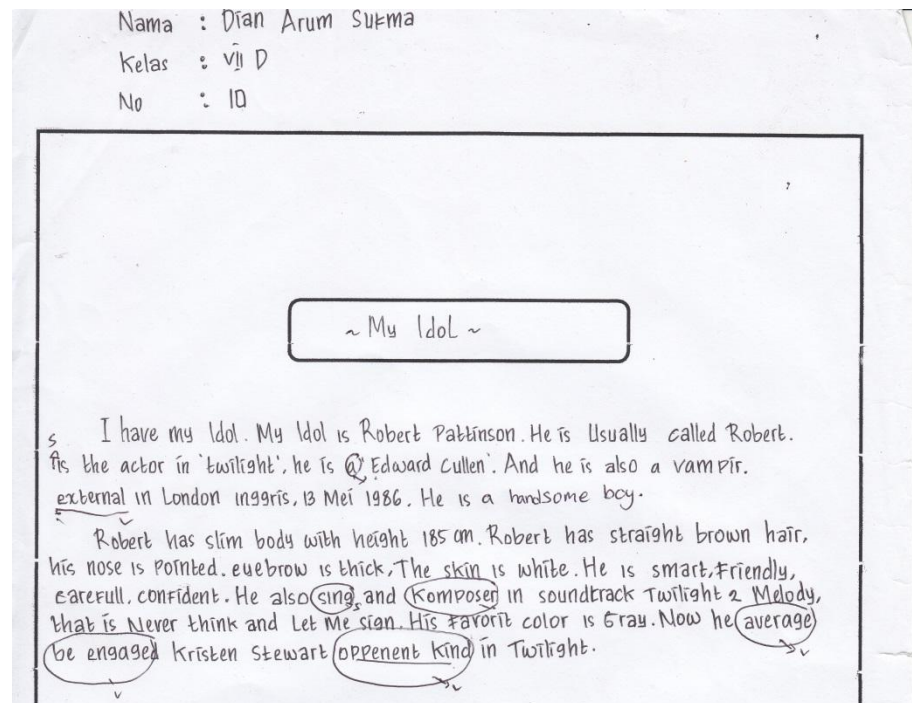 Nama : Dian Arum Sukma
Kelas : VII D
No : 10
~ My Idol ~
I have my Idol. My Idol is Robert Pattinson. He is Usually called Robert.
s
As the actor in 'twilight', he is a 'Edward Cullen'. And he is also a vampir.
external in London inggris, 13 Mei 1986. He is a handsome boy.
Robert has slim body with height 185 cm. Robert has straight brown hair,
his nose is Pointed. eyebrow is thick, The skin is white. He is smart, Friendly,
carefull, confident. He also sing, and Komposer in soundtrack Twilight 2 Melody,
that is Never think and Let Me sign. His Favorit color is Gray. Now he average
be engaged Kristen Stewart oppenent kind in Twilight.